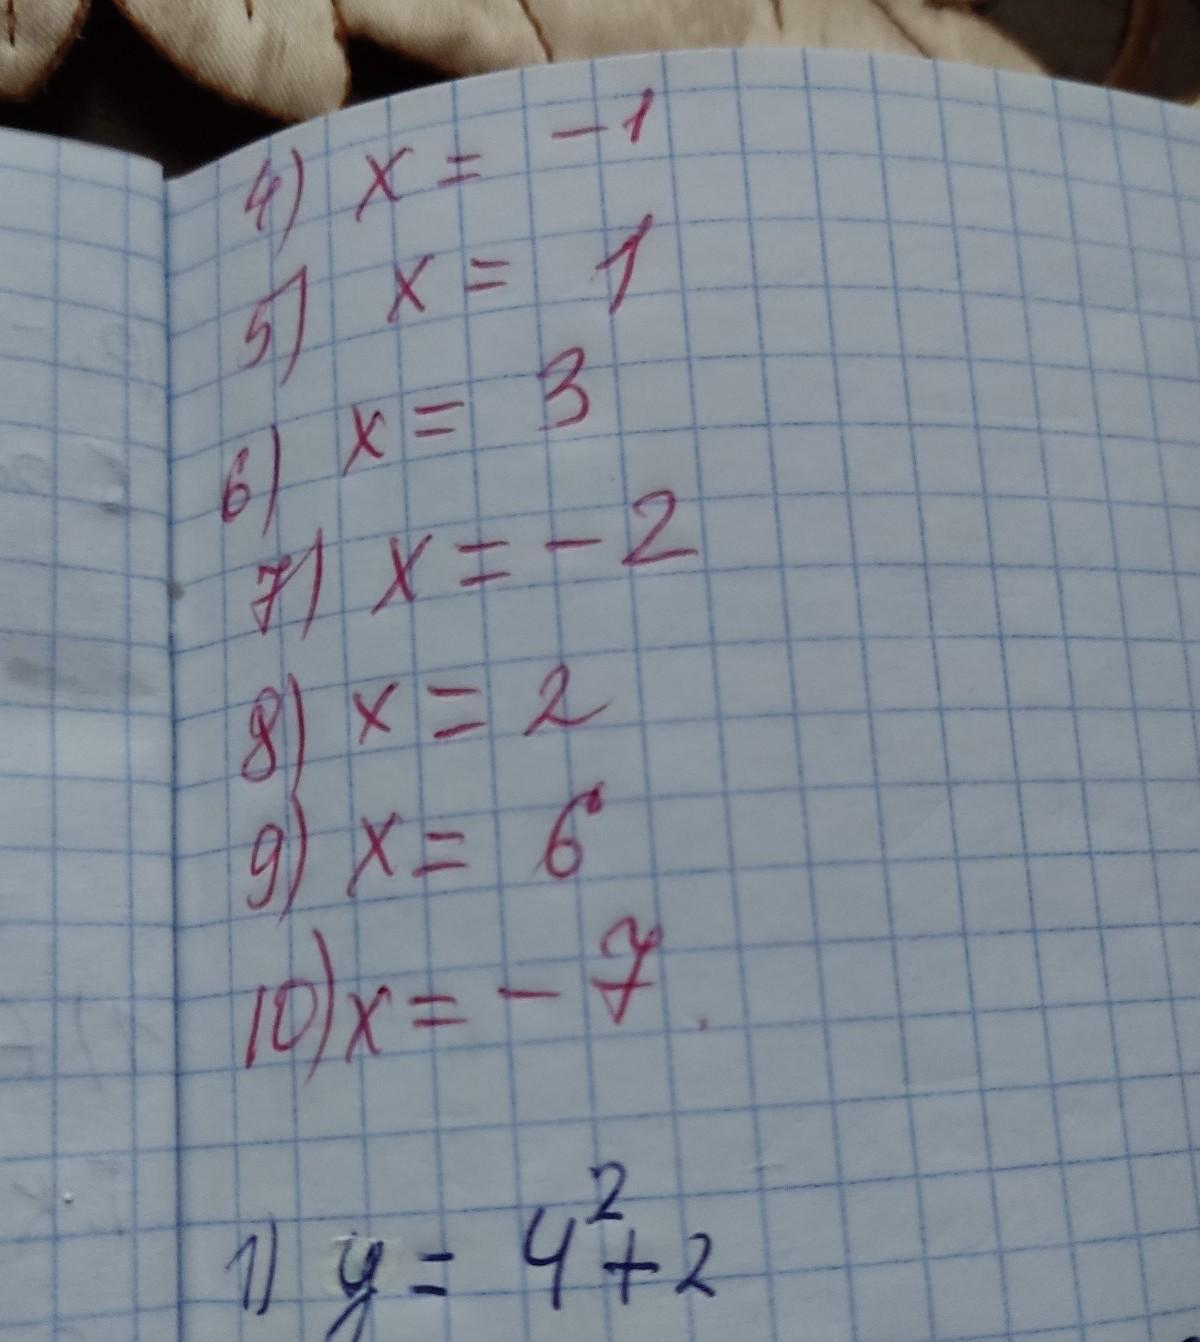 4) x = -1
5) x = 1
6) x = 3
7) x = -2
8) x = 2
9) x = 6
10) x = -7.
1) y = 4² + 2